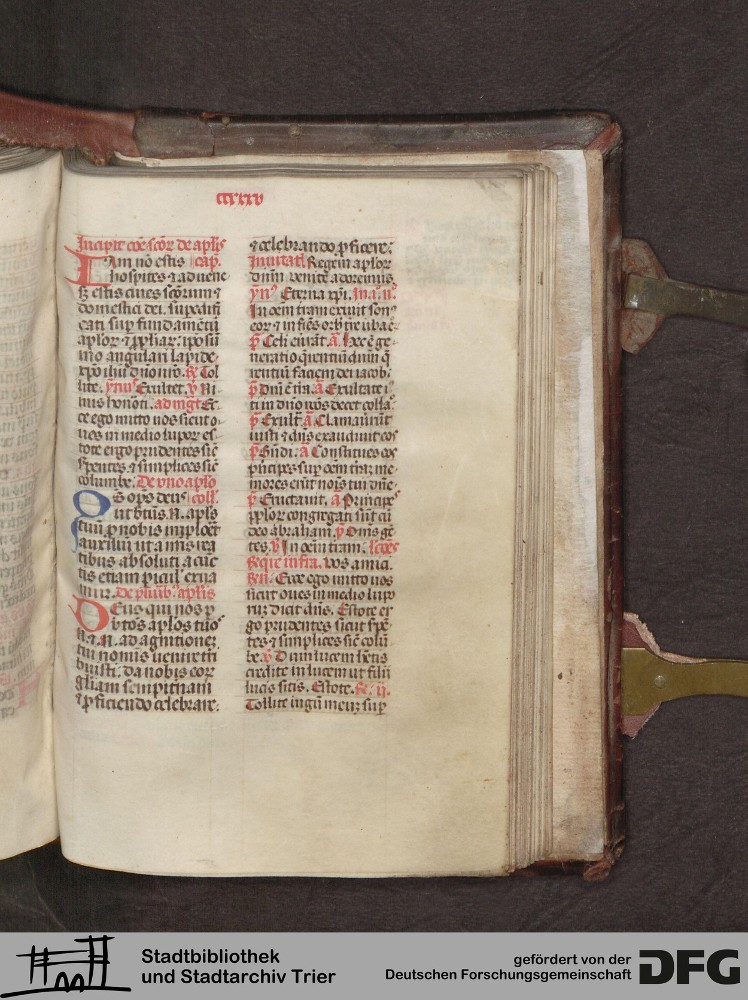 ccxxxv
Incipit cōe scōr de aplīs
Iam nō estis cap.
hospites ⁊ aduene
sꝫ estis ciues scōrum ⁊
domestici dei. supedifi
cati sup fundamētū
aplor ⁊ ꝓphar: ipo sū
mo angulari lapide
xpō ihū dno nrō. ℟ Tol
lite. ymꝰ Exultet. ℣ Ni
mis honoti. ad mgt Ec
ce ego mitto uos sicut o
ues in medio lupor es
tote ergo prudentes sic̄
sꝑentes ⁊ simplices sic̄
columbe. De vno aplo
Os ops deus coll.
ut btūs .N. aplūs
tuū ꝓ nobis implōet
auxiliū ut a nr̄is rea
tibus absoluti a cūc
tis etiam picul' erua
mur. De plurib; aplīs
Deus qui nos ꝑ
btōs aplos tuos
.N. ⁊ .N. ad agnitionez
tui nominis uenire tri
buisti. da nobis eor
gliam sempitnam
⁊ ꝓficiendo celebrare:
⁊ celebrando ꝓficere:
Inuitat Regem aplor
dnm. venite adoremus
ynꝰ Eterna xpi.
In oem tram exiuit son
eor ⁊ in fines orb
p̄ Celi enarāt A. Hec ē ge
neratio querentiū dnm q
rentiū faciem dei iacob.
p̄ Dnī ē tra A Exultate i
ti in dno
p̄ Exult A Clamauerūt
iusti ⁊ dn̄s exaudiuit eos
p̄ Bndi. A Constitues eos
principes sup oem tram me
mores erūt nois tui dne
p̄ Eructauit. A Principes
pplor congregati sūt cū
deo abraham. p̄ Oms gē
tes. ℣ In oem tram. lcoes
Reqre infra. Vos amici.
Ecce ego mitto uos
sicut oues in medio lupo
rū dicit dn̄s. Estote er
go prudentes sicut sꝑe
tes ⁊ simplices sic̄ colū
be. ℣ Dum lucem hetis
credite in lucem ut filii
lucis sitis. Estote. ℟. ij.
Tollite iugū meuz sup
Stadtbibliothek
und Stadtarchiv Trier
gefördert von der
Deutschen Forschungsgemeinschaft
DFG